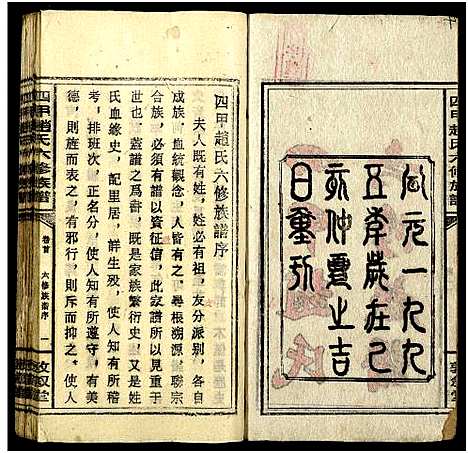 公元一九九
五年歲在乙
亥仲夏之吉
日重刊
四甲趙氏六修族譜
四甲趙氏六修族譜序
夫人既有姓，姓必有祖，友分派别，各自
成族，血統觀念，人皆有之，尋根溯源，聯宗
合族，必須有譜以資征信，此家譜所以見重于
世也，蓋譜之爲書，既是家族繁衍史，又是姓
氏血緣史，配里居，詳生殁，使人知有所稽
考，排班次，正名分，使人知有所遵守，有美
德，則旌而表之，有邪行，則斥而抑之，使人
四甲趙氏六修族譜
卷首
六修族譜序
一
敦叙堂